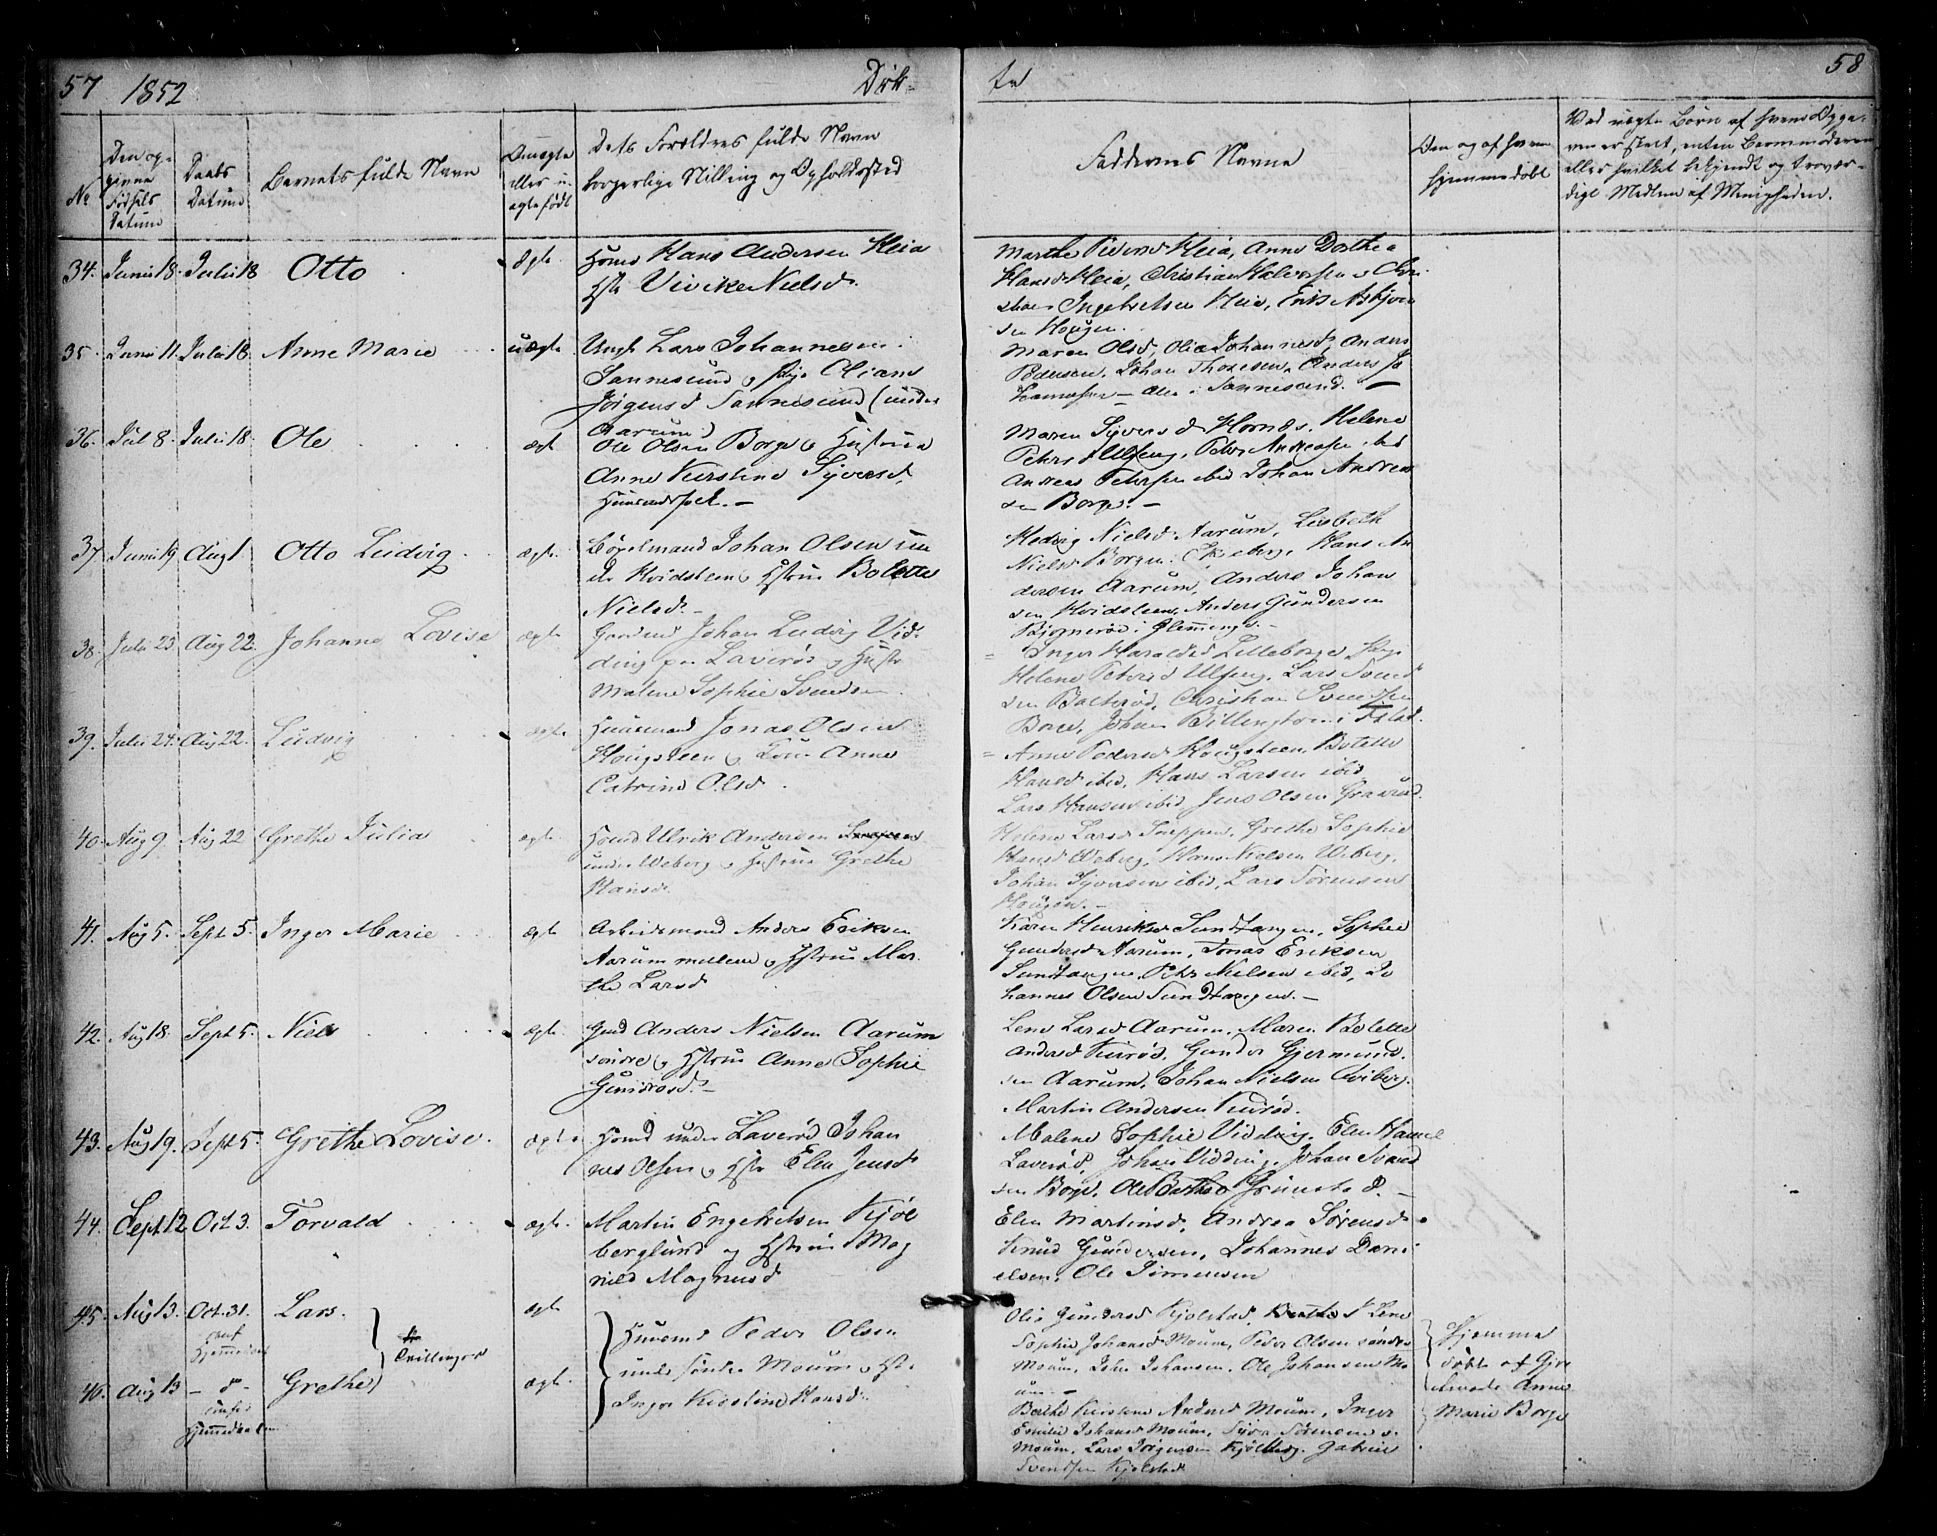 57 1852 Døb-
te 58
No
Den op-
givne
Fødsels
Datum
Daabs
Datum
Barnets fulde Navn
Om ægte
eller u-
ægte født
Dets Forældres fulde Navn
borgerlige Stilling og Opholdssted
Faddernes Navne
Om og af hvem
hjemmedøbt
Ved uægte Børn af hvem Opga-
ven er skeet, enten Barnemoderen
eller hvilket bekjendt og trovær-
digt Medlem af Menigheden.
34. Junii 18. Julii 18 Otto ægte
Hans Andersen Heia
Vivike Nielsd.
Marthe Heia, Anne Dorthea
Hansd Heia, Christian Halvorsen
Ingebretsen Heia, Erik Asbjørn
sen Hougen.
35. Junii 11. Julii 18. Anne Marie uægte
Ungk Lars Johannesen
Sannesund og Pige Oliane
Jörgensd Sannesund (under
Aarum)
Maren Olsd, Olia Johannesd, Anders
Pedersen, Johan Thoresen, Anders Jo
hannesen - alle i Sannesund. -
36. Jul 8. Julii 18. Ole ægt
Ole Olsen Borge og Hustrue
Anne Kirstine Syversd,
Huusmandsfolk. -
Maren Syversd Hornes, Helene
Petersd Ulfeng, Peter Andreasen ibid
Andreas Petersen ibid Johan Andrea
sen Borge. -
37. Junii 19. Aug 1. Otto Ludvig ægte
Johan Olsen un
der Hvidsteen og Hstrue Bolette
Nielsd. -
Hedvig Nielsd Aarum, Lisbeth
Nielsd Borgen, Hans An
dersen Aarum, Anders Johan
sen Hvidsteen, Anders Gundersen
Bjørnerød i Glemminge. -
38. Julii 23. Aug 22. Johanne Lovise ægte
Gaardmd Johan Ludvig Vid-
ding paa Laverød og Hustr
Malene Sophie Svendsen.
Inger Haralds Lilleborge, Pige
Helene Petersd Ulfeng, Lars Svend
sen Christian Svendsen
Borge, Johan i
39. Julii 24. Aug 22. Ludvig ægte
Huusmand Jonas Olsen
Hougsteen og Kone Anne
Catrine Olsd.
Anne Pedersd Hougsteen, Bolette
Hansd ibid, Hans Larsen ibid
Lars Hansen ibid, Jens Olsen
40. Aug 9. Aug 22 Grethe Julia ægte
Huusmd Ulrik Andersen
under Weberg og Hustrue Grethe
Hansd.
Helene Larsd Sneppen, Grethe Sophie
Hansd Weberg, Hans Nielsen Weberg,
Johan Syversen ibid, Lars Sörensen
Hougen. -
41. Aug 5. Sept 5. Inger Marie ægte
Arbeidsmand Anders Eriksen
Aarum mellem og Hstrue Mar
the Larsd
Karen Henriksd Sundtangen, Sophie
Gundersd Aarum, Jonas Eriksen
Sundtangen, Peter Nielsen ibid, Jo
hannes Olsen Sundtangen. -
42. Aug 18. Sept 5. Niels ægte
Gmd Anders Nielsen Aarum
søndre og Hstrue Anne Sophie
Gundersd. -
Lene Larsd Aarum, Maren Bolette
Andersd Gunder Gjermund-
sen Aarum, Johan Nielsen
Martin Andersen
43. Aug 19. Sept 5. Grethe Lovise. ægte
Hsmd under Laverød Johan
nes Olsen og Hstr Elen Jensd
Malene Sophie Vidding, Elen Hansd
Laverød, Johan Vidding, Johan Svend
sen Borge, Ole Grimstad. -
44. Sept 12 Oct 3. Torvald ægte
Martin Engebretsen Kjöl
berglund og Hstrue Mag
nild Magnusd
Elen Martinsd, Andrea Sörensd
Knud Gundersen, Johannes Dani
elsen, Ole Simensen
45. Aug 13. Oct. 31. Lars. ægte
Hjemmedaab
Tvillinger
46. Aug 13 - d - Grethe ægte
Hjemmedaaben
Huusmd Peder Olsen
under søndre Moum og Hstr
Inger Kirstine Hansd.
Olia Gundersd Kjølstad, Lene
Sophie Johansd Moum, Peder Olsen søndre
Moum, Johan Johansen, Ole Johansen Mo
um. -
Berthe Kirstine Andersd Moum, Inger
Emilie Johansd Moum, Syver Sörensen
Moum, Lars Jörgensen Kjölberg, Gabriel
Svendsen Kjølstad
Hjemme
døbte af Gjor
demode Anne
Marie Borge